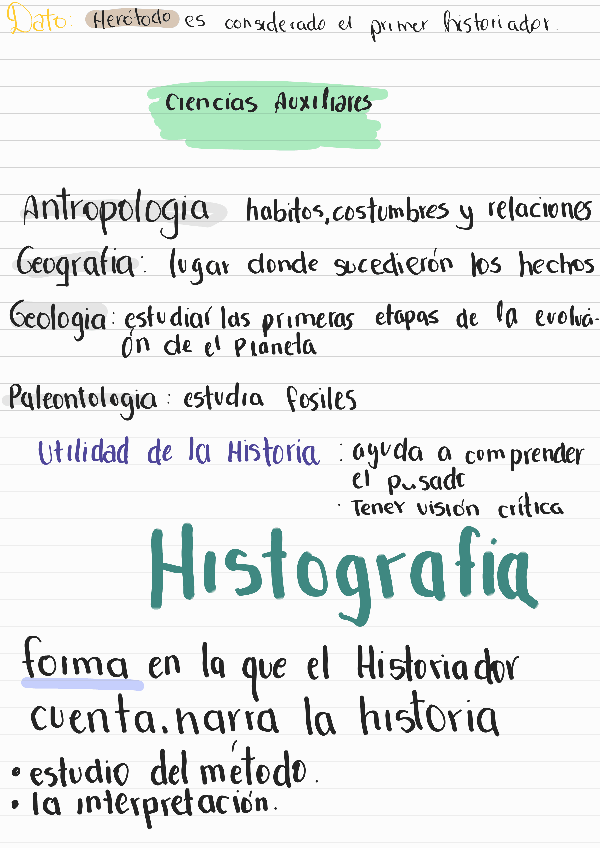 Dato: Herótodo es considerado el primer historiador.
Ciencias Auxiliares
Antropologia habitos, costumbres y relaciones
Geografia: lugar donde sucedierón los hechos
Geologia: estudiar las primeras etapas de la evoluci-
ón de el Planeta
Paleontologia: estudia fosiles
Utilidad de la Historia : ayuda a comprender
el pusado
· Tener visión crítica
Histografia
forma en la que el Historiador
cuenta, narra la historia
• estudio del método.
• la interpretación.